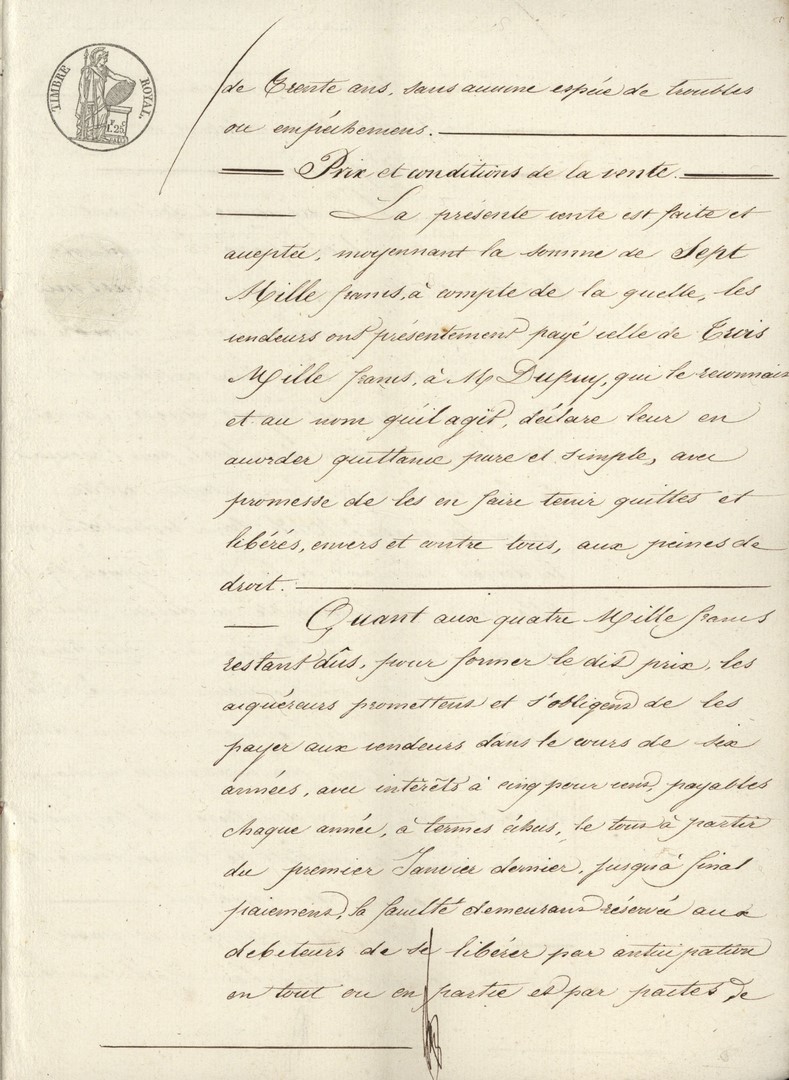 TIMBRE ROYAL.
1 F 25 C
de Trente ans, sans aucune espéce de troubles
ou empéchemens.
Prix et conditions de la vente.
La présente vente est faite et
acceptée, moyennant la somme de Sept
Mille francs, à compte de la quelle, les
vendeurs ont présentement payé celle de Trois
Mille francs, à Mr Dupuy, qui le reconnait
et au nom qu'il agit, déclare leur en
accorder quittance pure et simple, avec
promesse de les en faire tenir quittes et
libérés, envers et contre tous, aux peines de
droit.
Quant aux quatre Mille francs
restant dûs, pour former le dit prix, les
acquéreurs promettent et s'obligent de les
payer aux vendeurs dans le cours de six
années, avec intérêts à cinq pour cent, payables
chaque année, à termes échus, le tout à partir
du premier Janvier dernier, jusqu'à final
paiement, la faculté demeurant réservée aux
debiteurs de se libérer par anticipation
en tout ou en partie et par pactes de